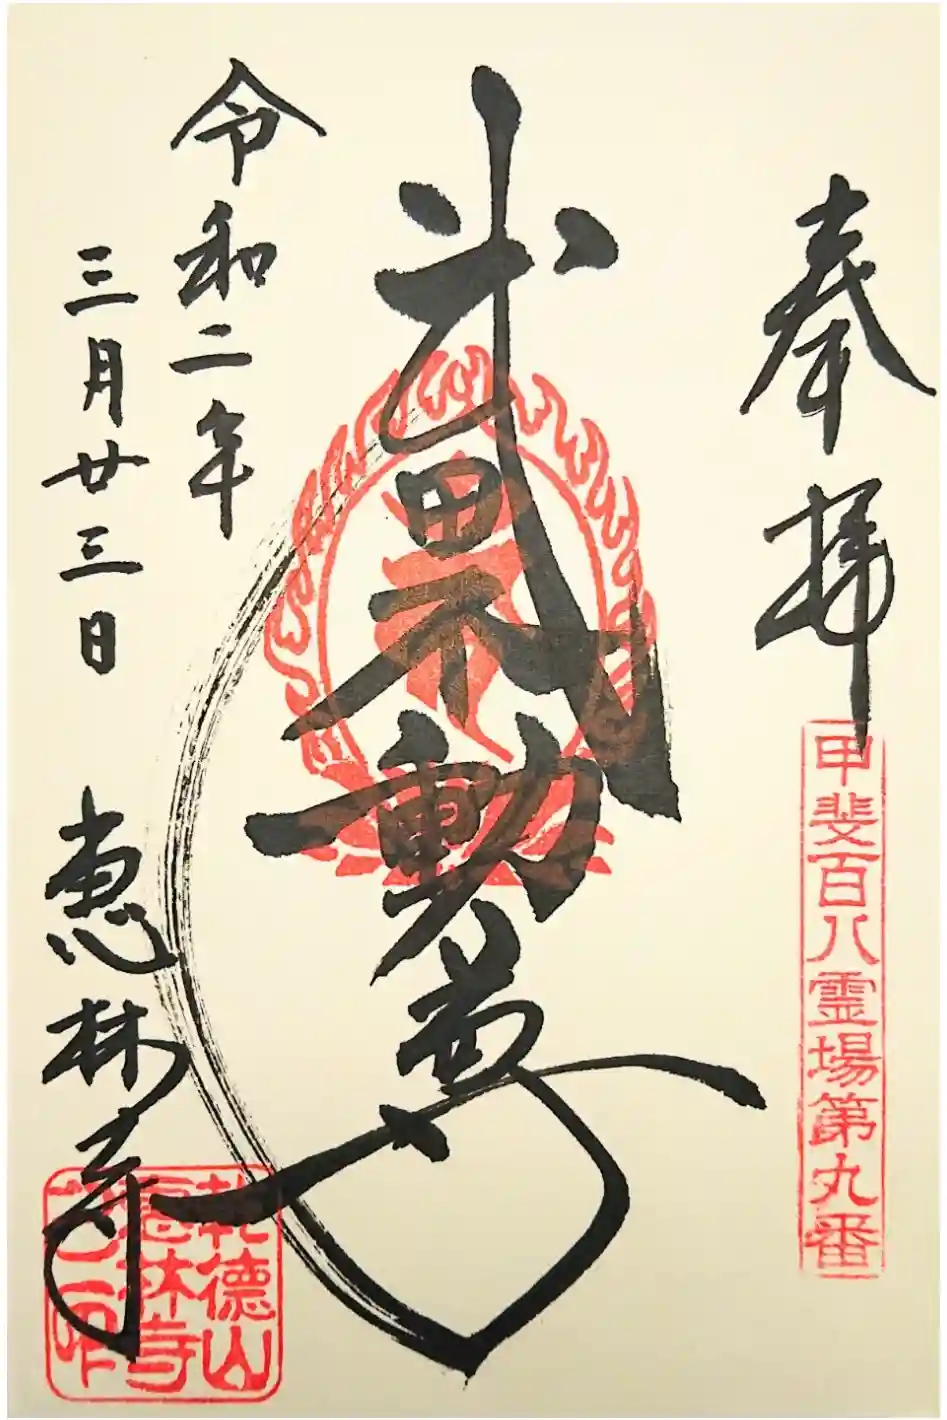 奉拝
甲斐百八霊場第九番
武田不動尊
令和二年
三月廿三日
恵林寺
乾徳山
恵林寺
之印